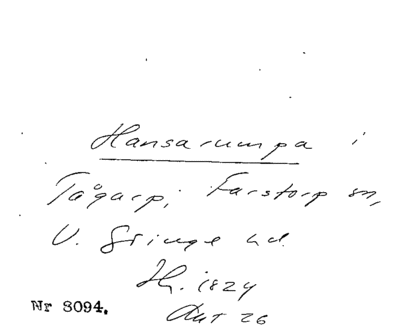 Hansarumpa i
Tågarp, Farstorp sn,
V. Göinge hd.
Th. 1824
Akt 26
Nr 8094.